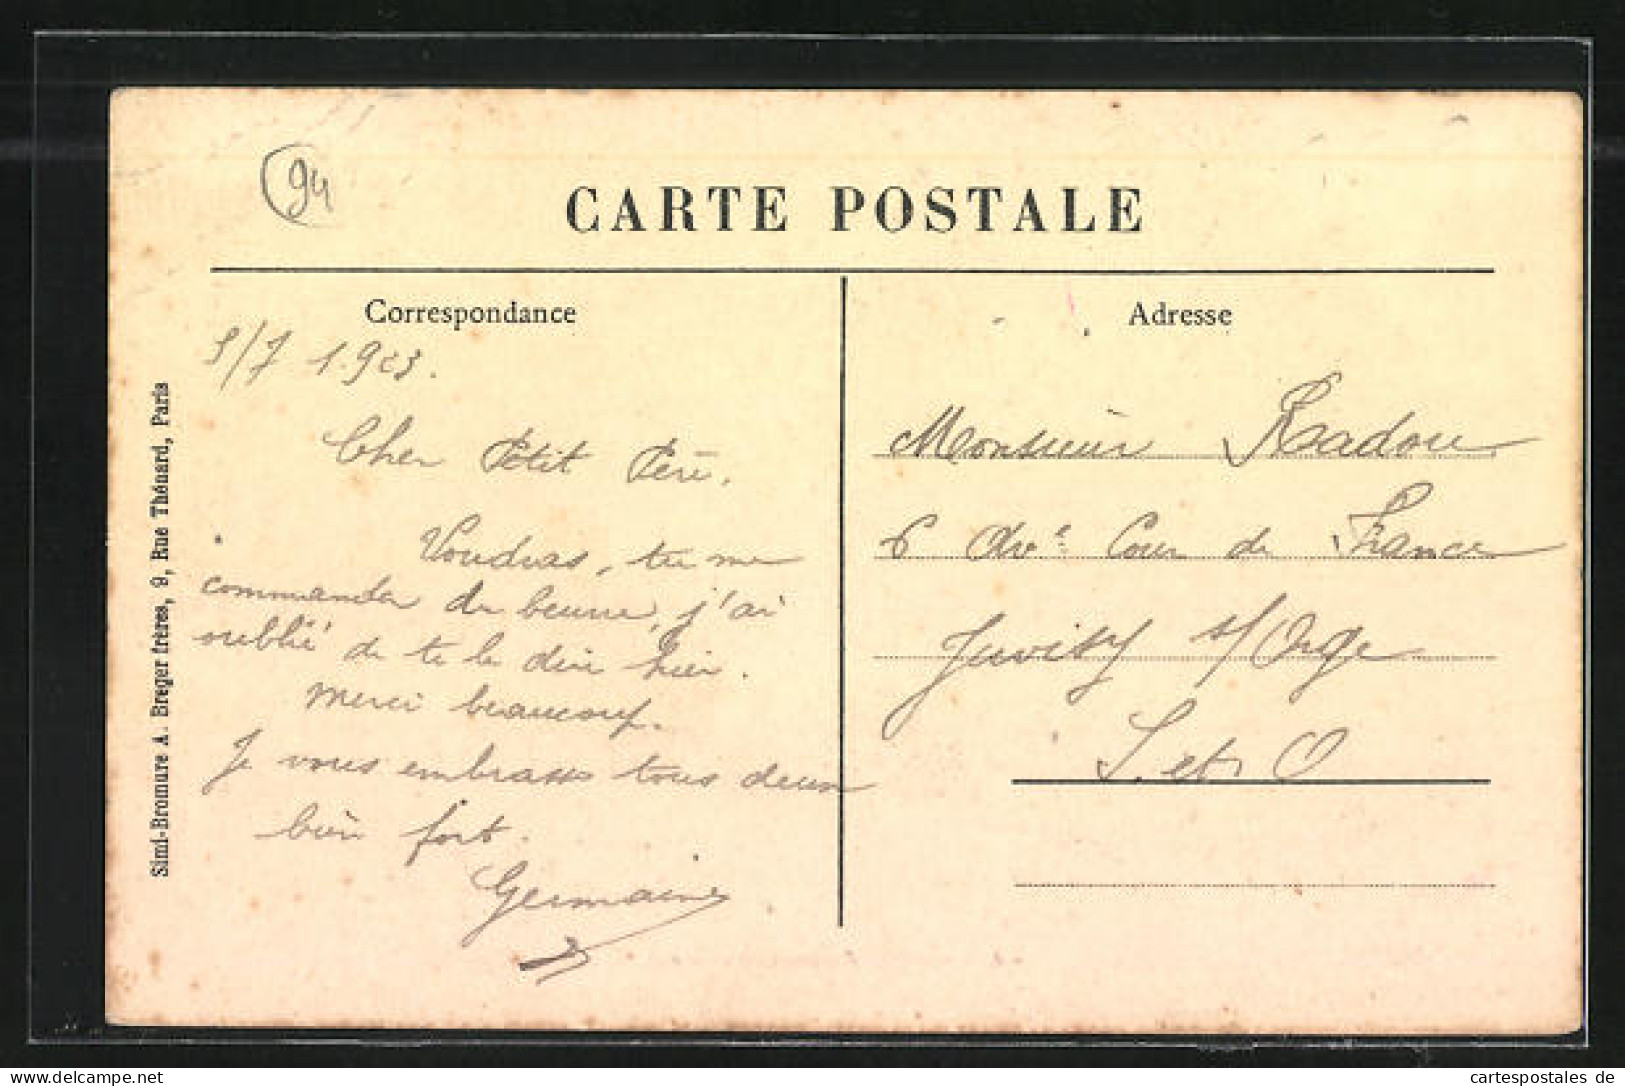 94
CARTE POSTALE
Correspondance
Adresse
/7 1.923.
Cher Petit Père.
Voudras, tu me
commander du beurre, j'ai
oublié de te le dire hier.
Merci beaucoup.
Je vous embrasse tous deux
bien fort.
Germaine
Monsieur Radou
6 Ave Cour de France
Juvisy s/Orge
S. et O
Simi-Bromure A. Breger frères, 9, Rue Thénard, Paris
delcampe.net
cartespostales de